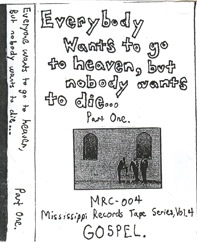 Everyone wants to go to heaven,
But nobody wants to die...
Part One.
Everybody
Wants to go
to heaven, but
nobody wants
to die...
Part One.
MRC-004
Mississippi Records Tape Series, Vol. 4
GOSPEL.